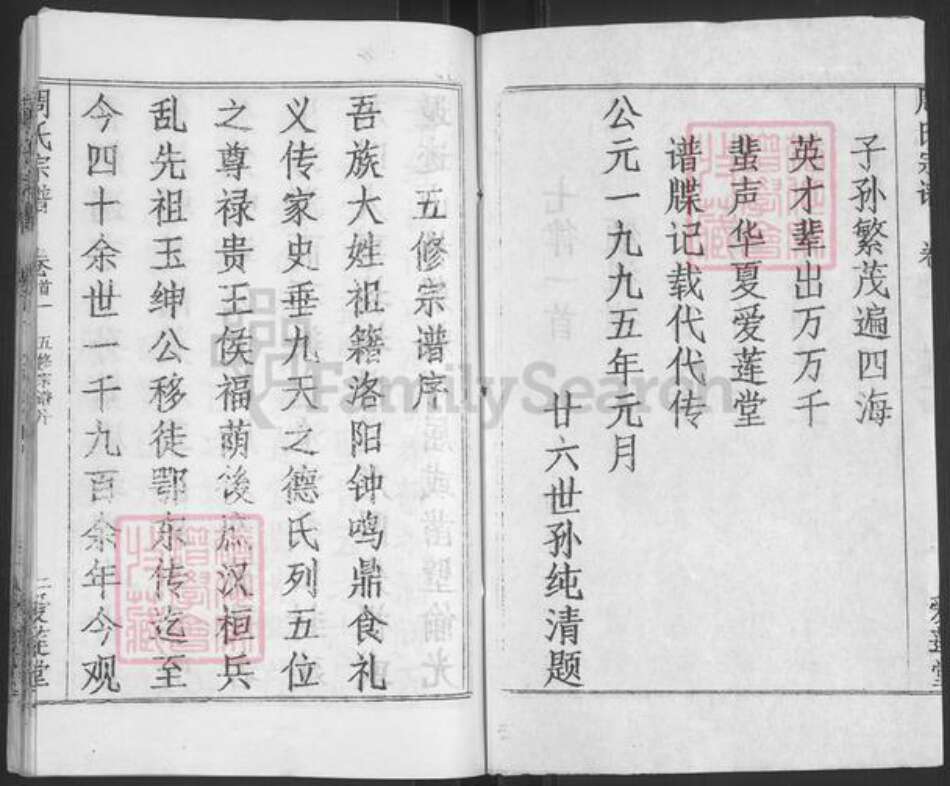 子孙繁茂遍四海
英才辈出万万千
蜚声华夏爱莲堂
谱牒记载代代传
公元一九九五年元月
廿六世孙纯清题
五修宗谱序
吾族大姓祖籍洛阳钟鸣鼎食礼
义传家史垂九天之德氏列五位
之尊禄贵王侯福荫後庶汉桓兵
乱先祖玉绅公移徒鄂东传迄至
今四十余世一千九百余年今观
周氏宗谱 卷首一 五修宗谱序 爱莲堂
FamilySearch